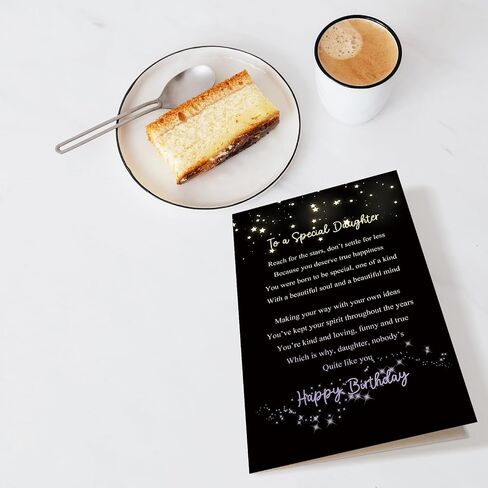 To a Special Daughter
Reach for the stars, don't settle for less
Because you deserve true happiness
You were born to be special, one of a kind
With a beautiful soul and a beautiful mind
Making your way with your own ideas
You've kept your spirit throughout the years
You're kind and loving, funny and true
Which is why, daughter, nobody's
Quite like you
Happy Birthday